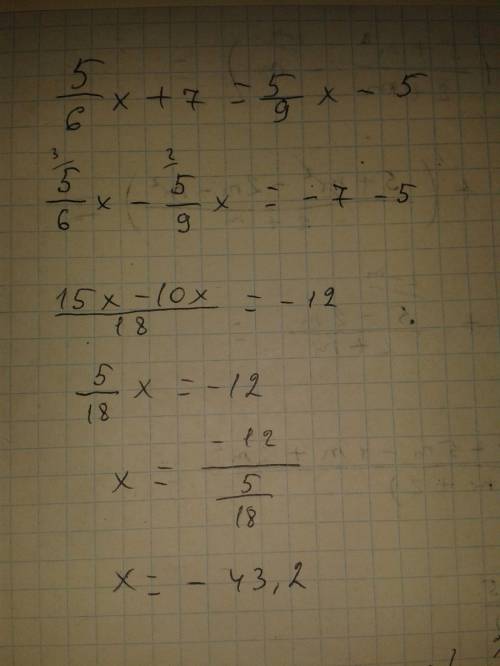 5/6 x + 7 = 5/9 x - 5
3 2
5/6 x - 5/9 x = - 7 - 5
15x - 10x / 18 = - 12
5/18 x = - 12
x = - 12 / 5/18
x = - 43,2